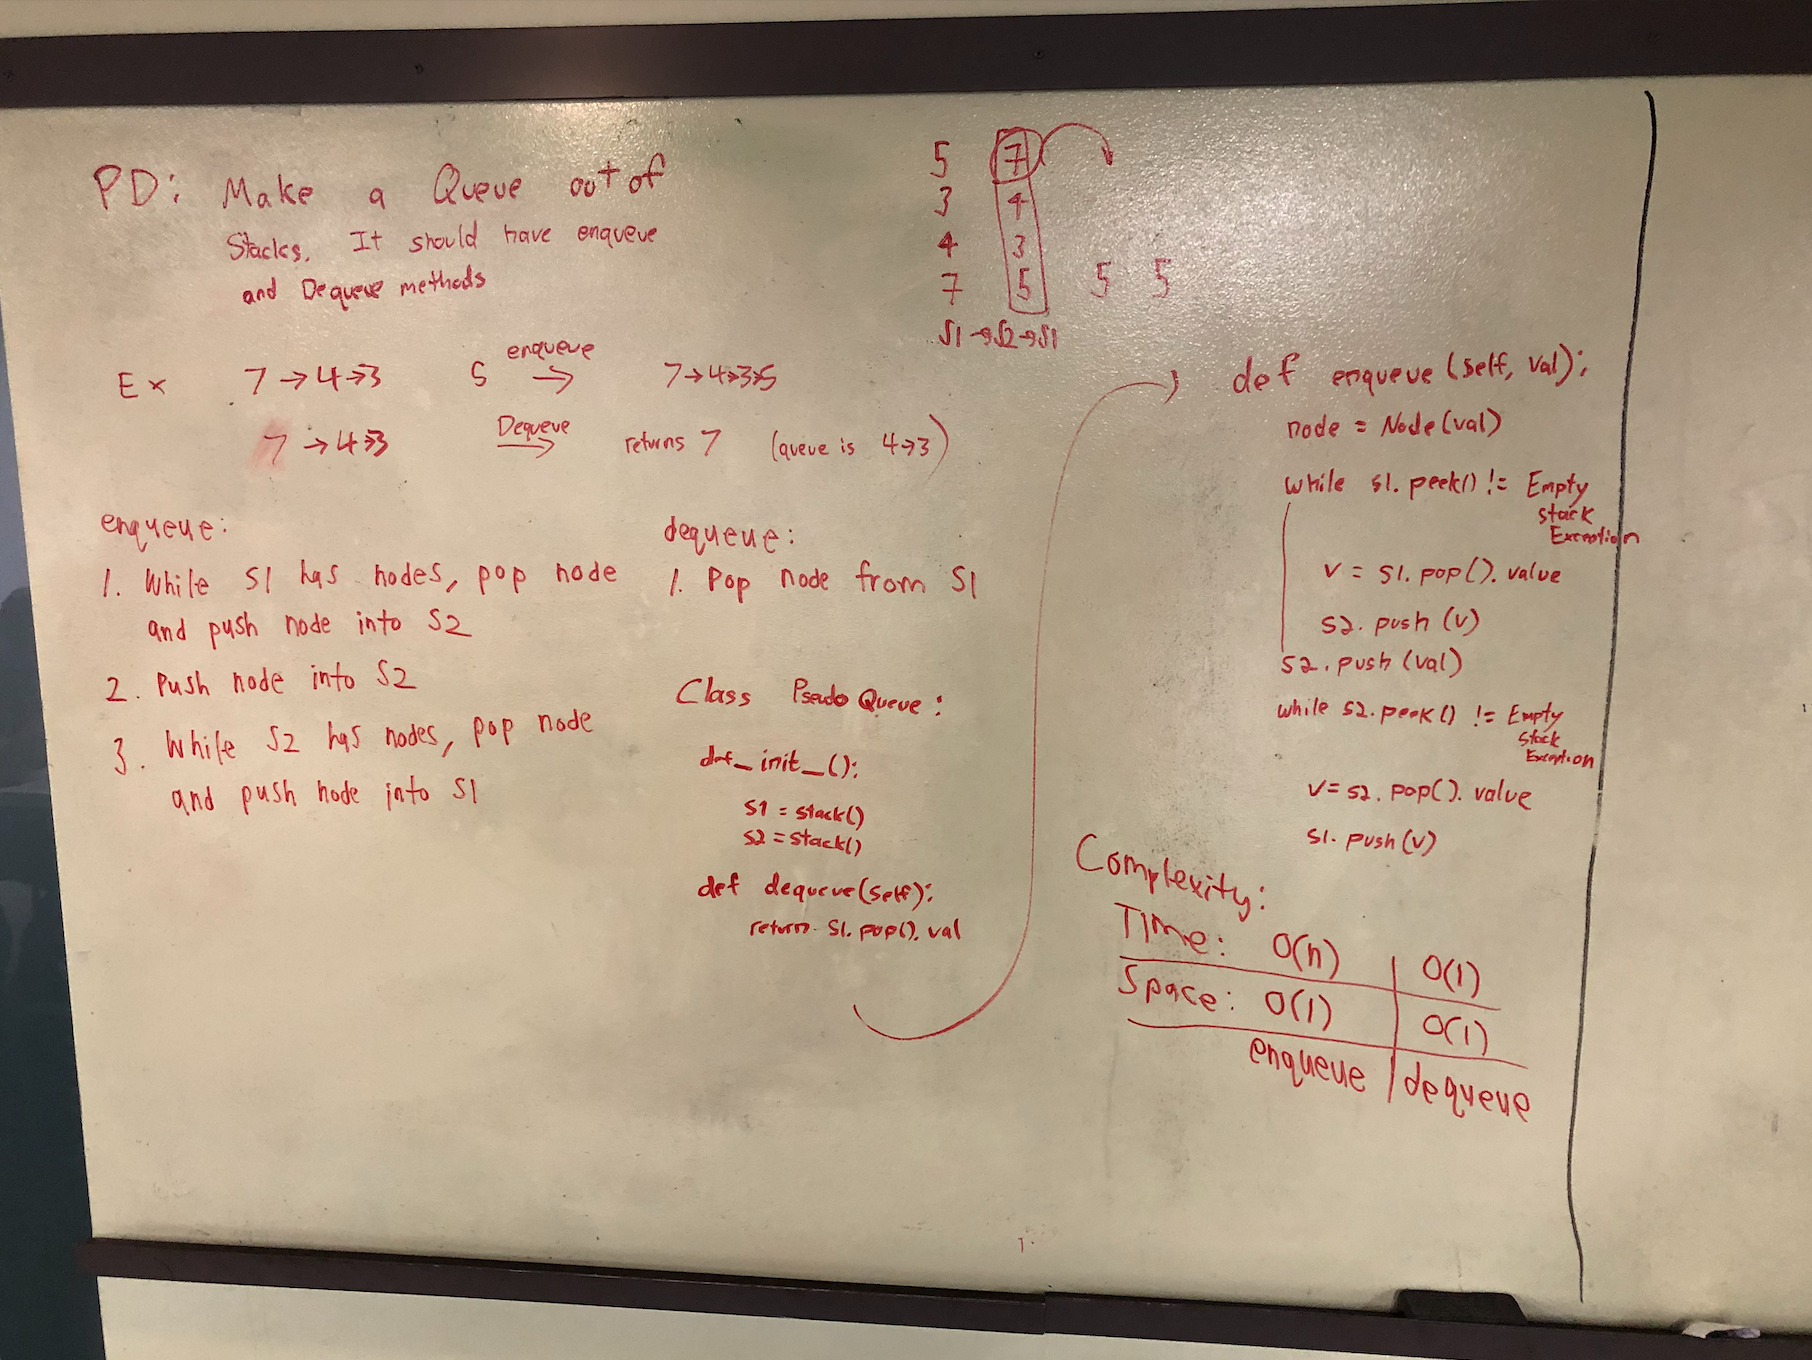 PD: Make a Queue out of
Stacks. It should have enqueue
and Dequeue methods
5 7
3 4
4 3
7 5 5 5
S1 → S2 → S1
Ex 7 → 4 → 3 5 enqueue → 7 → 4 → 3 → 5
7 → 4 → 3 Dequeue → returns 7 (queue is 4 → 3)
enqueue:
1. While S1 has nodes, pop node
and push node into S2
2. Push node into S2
3. While S2 has nodes, pop node
and push node into S1
dequeue:
1. Pop node from S1
Class Pseudo Queue:
def_init_():
S1 = stack()
S2 = stack()
def dequeue(self):
return S1.pop().val
def enqueue(self, val):
node = Node(val)
while S1.peek() != Empty
stack
Exception
v = S1.pop().value
S2.push(v)
S2.push(val)
while S2.peek() != Empty
stack
Exception
v = S2.pop().value
S1.push(v)
Complexity:
Time: O(n) | O(1)
Space: O(1) | O(1)
enqueue | dequeue